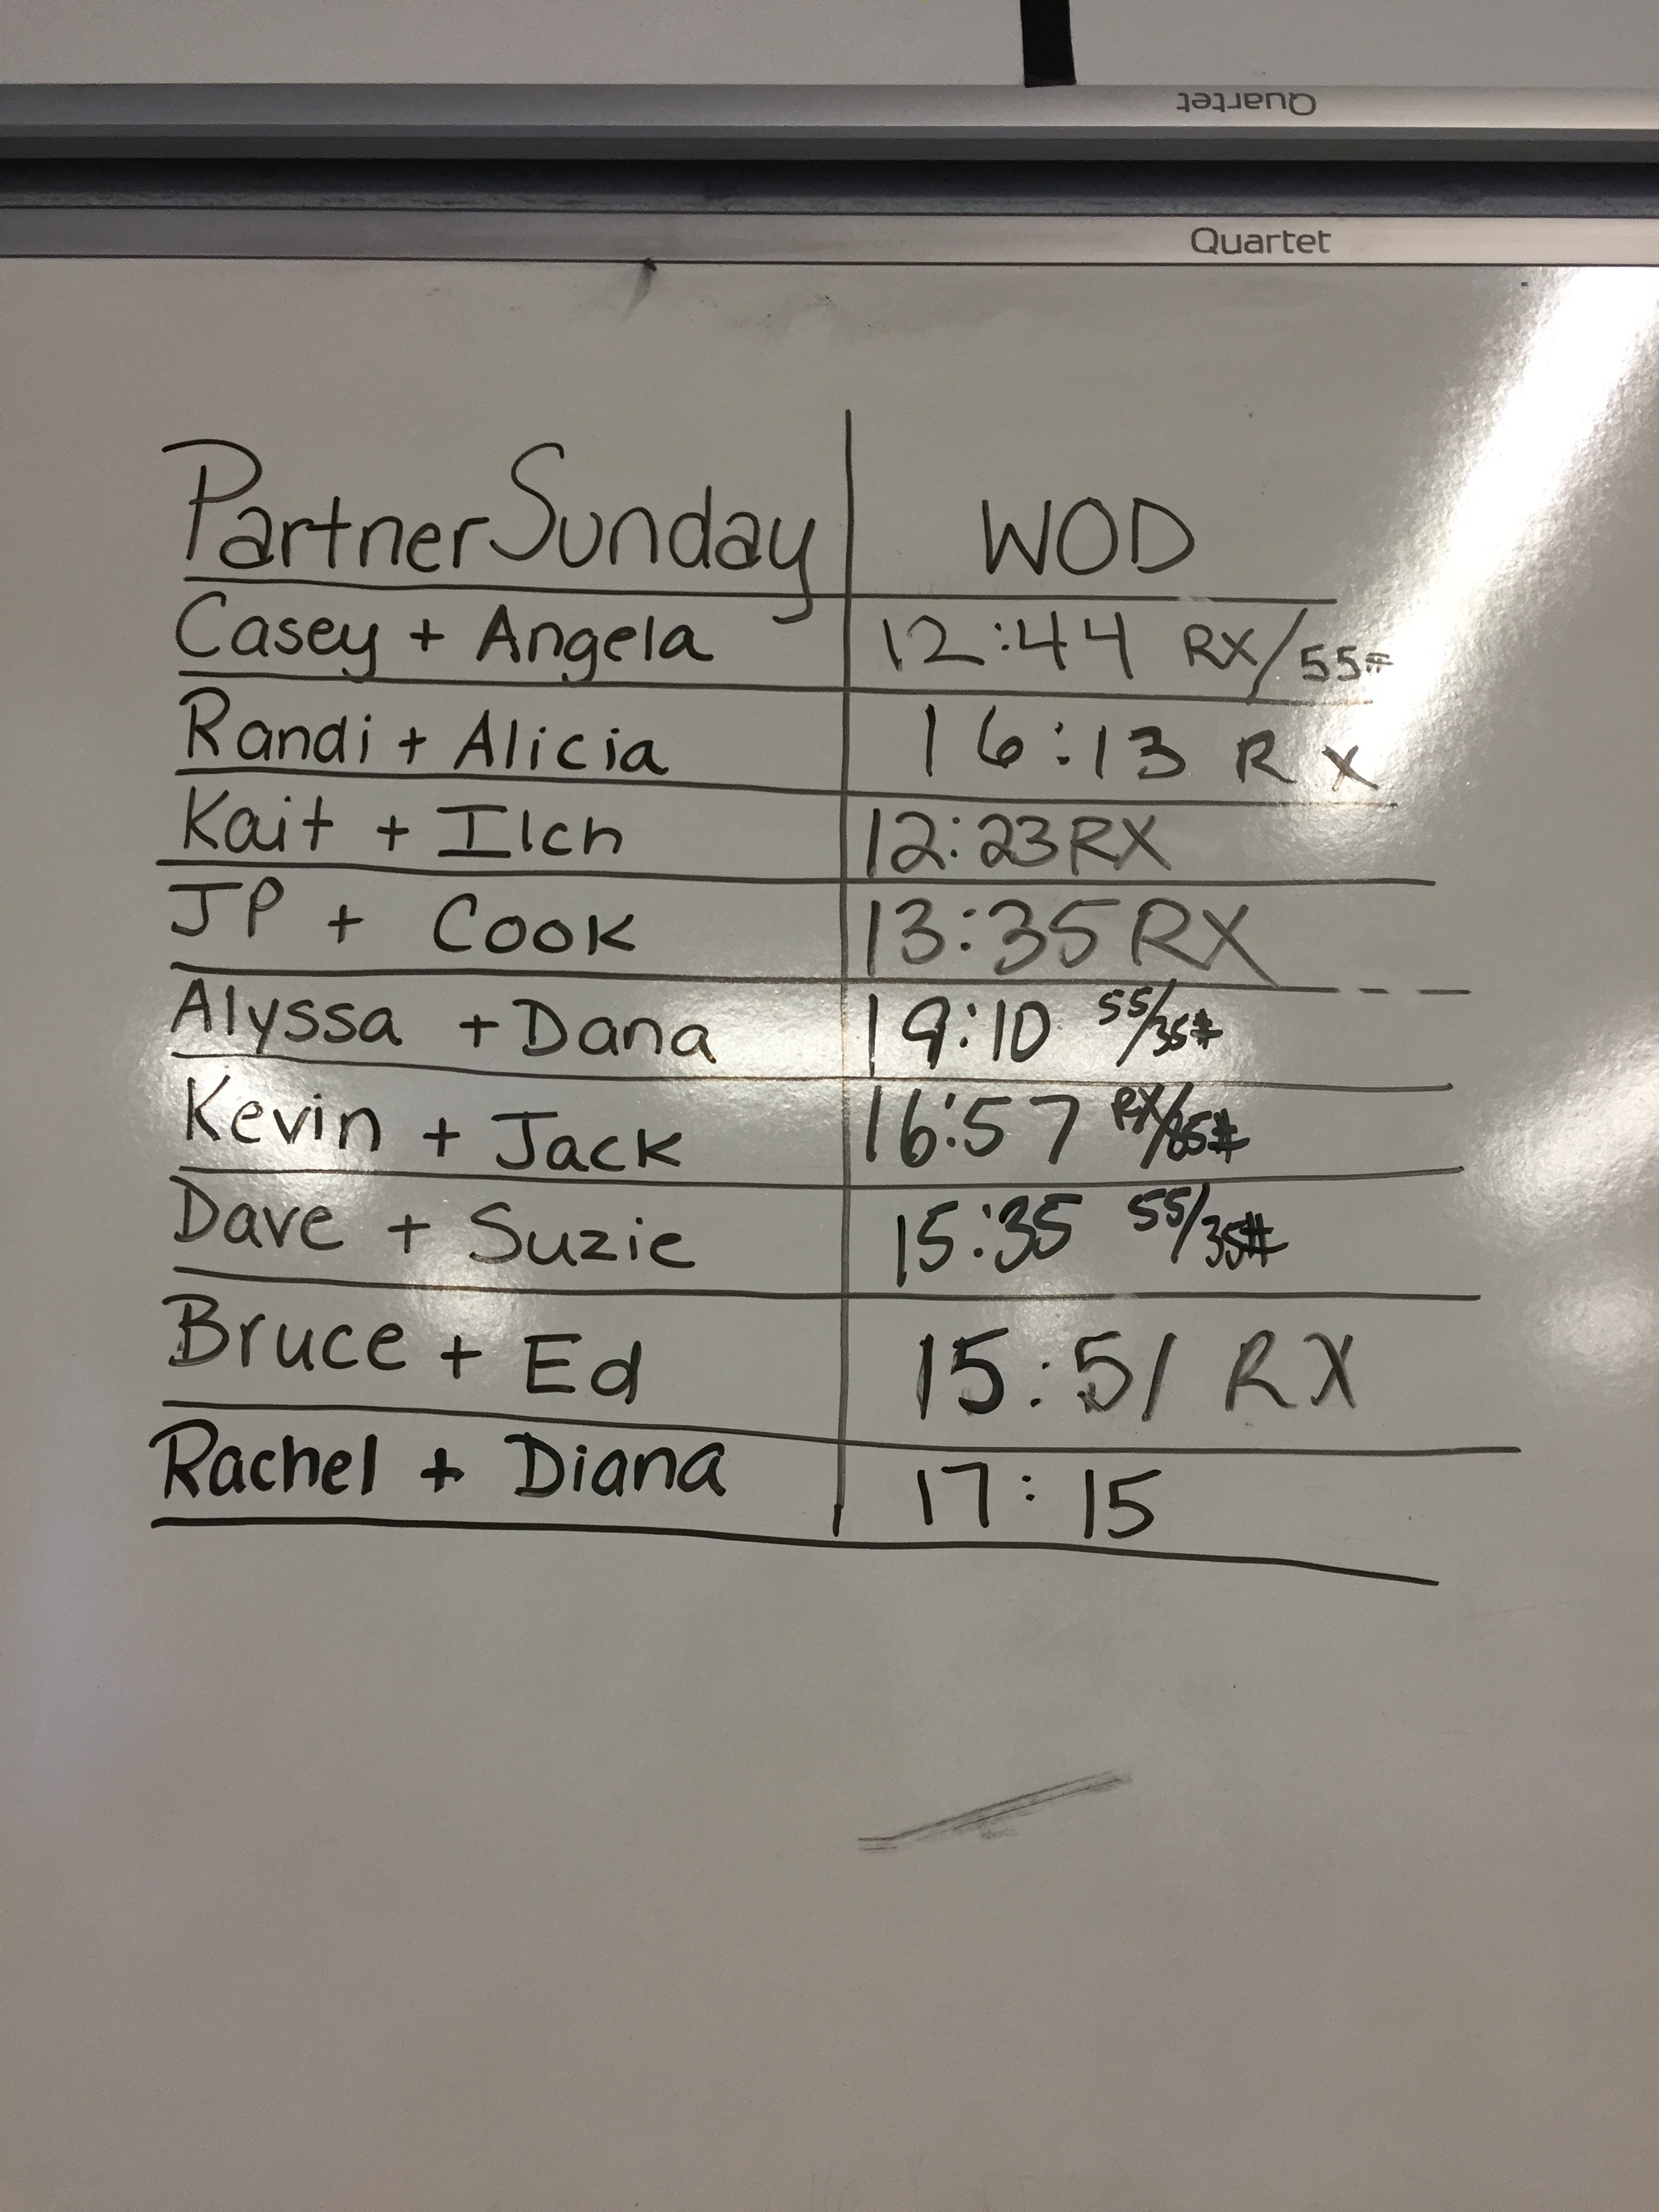 Quartet
Quartet
Partner Sunday WOD
Casey + Angela 12:44 RX/55#
Randi + Alicia 16:13 RX
Kait + Ilch 12:23 RX
JP + Cook 13:35 RX
Alyssa + Dana 19:10 55/35#
Kevin + Jack 16:57 RX/85#
Dave + Suzie 15:35 55/35#
Bruce + Ed 15:51 RX
Rachel + Diana 17:15